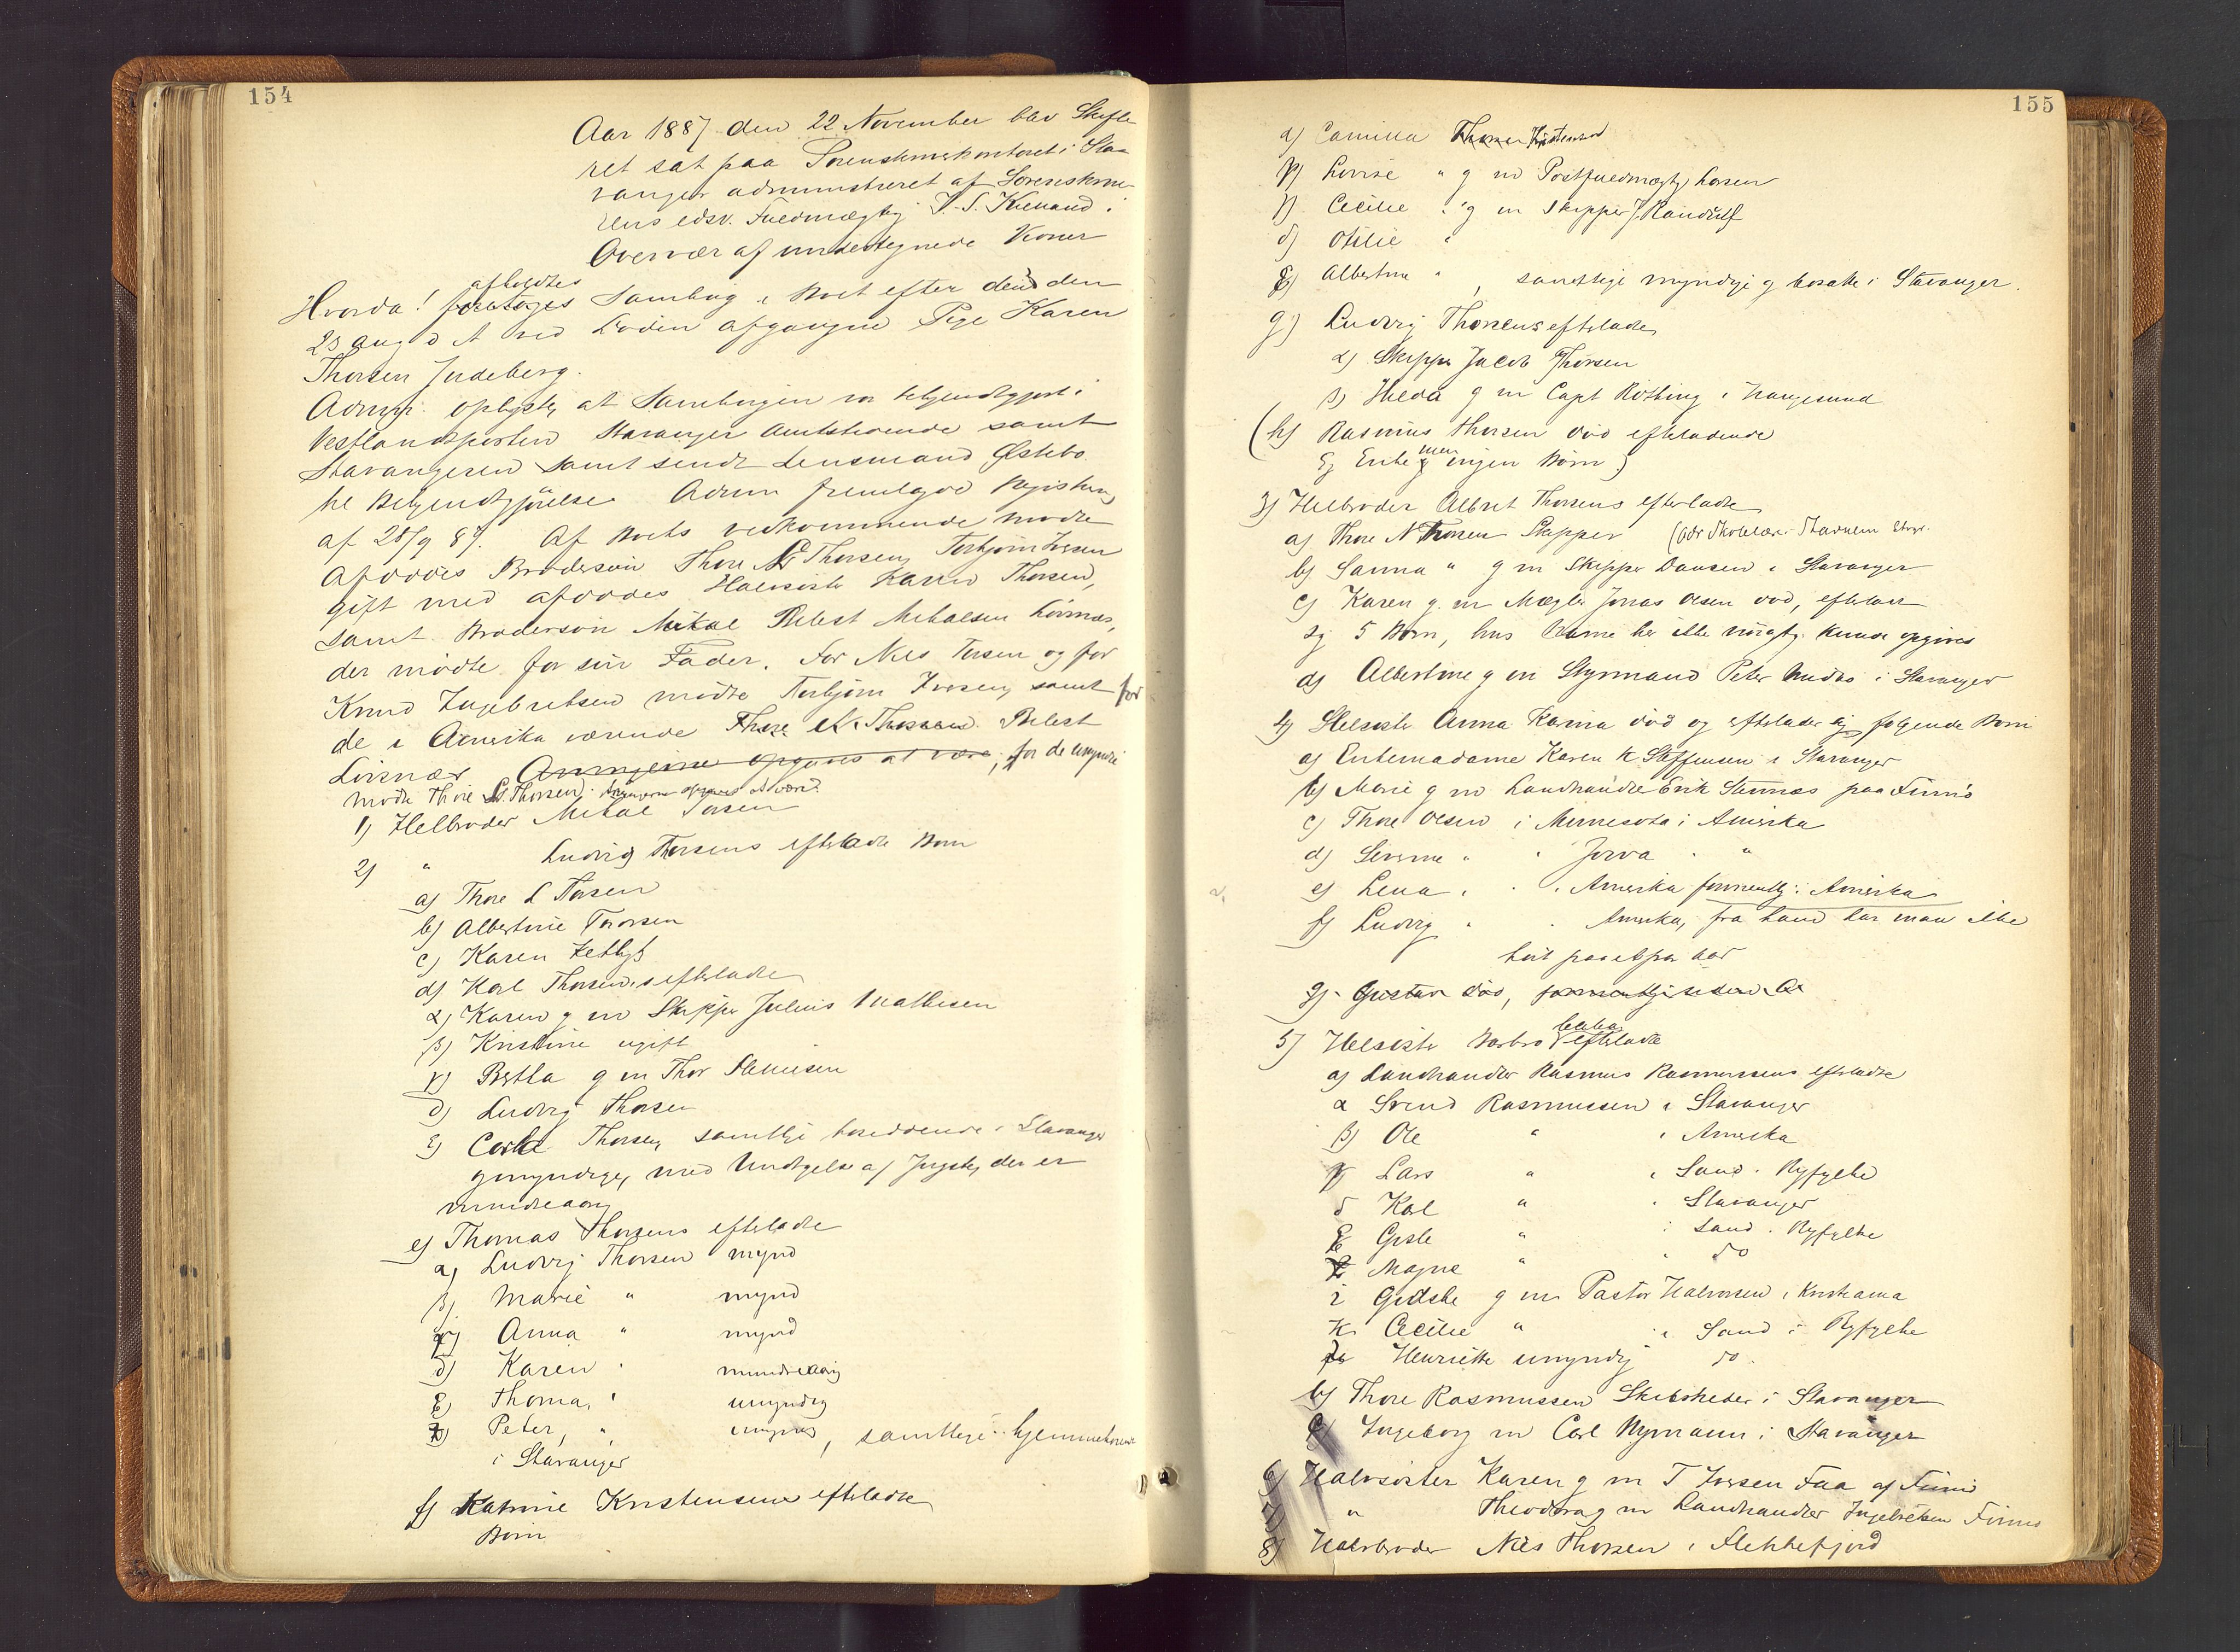 154
Aar 1887 den 22 November blev Skifte
ret sat paa Sorenskriverkontoret i Sta
vanger administreret af Sorenskrive
rens edsv. Fuldmægtig J. S. Kielland i
Overvær af undertegnede Vidner
afholdtes
Hvorda! foretoges Samling i Boet efter den den
23 Aug d A ved Døden afgangne Pige Karen
Thorsen Judeberg.
Admin. oplyste, at Samlingen var bekjendtgjort i
Vestlandsposten Stavanger Amtstidende samt
Stavangeren samt sendt Lensmand Østebø
til Bekjendtgjørelse Admin fremlagde Registering
af 28/9 87. Af Boets vedkommende mødte
Afdødes Brodersøn Thore L Thorsen, Torbjørn Iversen
gift med afdødes Halvsøster Karen Thorsen,
samt Brodersøn Mikal Belest Mikalsen Löisnæs,
der mødte for sin Fader. For Nils Torsen og for
Knud Ingebretsen mødte Torbjørn Iversen, samt for
de i Amerika værende Thore N. Thorsen Belest
Löisnæs Arvingerne opgaves at være; for de umyndige
mødte Thore L. Thorsen. Arvingerne opgaves at være:
1) Helbroder Mikal Torsen
2) " Ludvig Thorsens efterladte Børn
a) Thore L Torsen
b) Albertine Thorsen
c) Karen Zetlitz
d) Karl Thorsens efterladte
α) Karen g m Skipper Julius Mathisen
β) Kristine ugift
γ) Bertha g m Thor
δ) Ludvig Thorsen
ε) Carl Thorsen, samtlige hørende i Stavanger
g myndige, med Undtagelse af yngste, der er
mindreaarig
e) Thomas Thorsens efterladte
α) Ludvig Thorsen mynd
β) Marie " mynd
γ) Anna " mynd
δ) Karen " mindreaarig
ε) Thoma, " umyndig
ζ) Peter, " umynd, samtlige hjemmehørende
i Stavanger
f) Katrine Kristensens efterladte
Børn
155
α) Camilla Thorsen Kristensen
β) Lovise " g m Postfuldmægtig Larsen
γ) Cecilie " g m Skipper J. Randulf
δ) Otilie "
ε) Albertine " , samtlige myndige g bosatte i Stavanger.
g) Ludvig Thorsens efterladte,
α) Skipper Jacob Thorsen
β) Hilda g m Capt Rötting i Haugesund
(h) Rasmus Thorsen död efterladende
sig Enke men ingen Börn)
3) Helbroder Albret Thorsens efterladte
a) Thore N Thorsen Skipper
b) Sanna " g m Skipper Dausen i Stavanger
c) Karen g. m Mægler Jonas Olsen död, efterlader
sig 5 Børn, hvis Navne her ikke nöiagtig kunde opgives
d) Albertine g m Styrmand Peter i Stavanger
4) Helsöster Anna Karina död og efterlader sig følgende Börn
a) Enkemadame Karen K Steffensen i Stavanger
b) Marie g m Landhandler Erik Steinnæs paa Finnö
c) Thore Olsen i Minnesota i Amerika
d) Severine " " Jova " "
e) Lena " " Amerika formentlig i Amerika
f) Ludvig " " Amerika, fra ham har man ikke
hört paa et par aar
g) Gustav död, formentlig siden
5) Helsöster Barbro efterladte
a) Landhandler Rasmus Rasmussens efterladte
α Svend Rasmussen i Stavanger
β) Ole " i Amerika
γ) Lars " i Sand i Ryfylke
δ Karl " i Stavanger
ε Gisle " i Sand i Ryfylke
ζ Magne " " do
i Gidske g m Pastor Halvorsen i Kristiania
κ Cecilie " i Sand i Ryfylke
Henriette umyndig do
b) Thore Rasmussen Skibsreder i Stavanger
c) Ingeborg m Carl Nymann i Stavanger
6) Halvsöster Karen g m T Iversen Faa af Finnö
7) " Theodora g m Landhandler Ingebretsen Finnö
8) Halvbroder Nils Thorsen i Flekkefjord